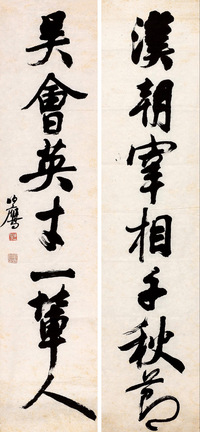 漢朝宰相千秋節
吳會英才一輩人